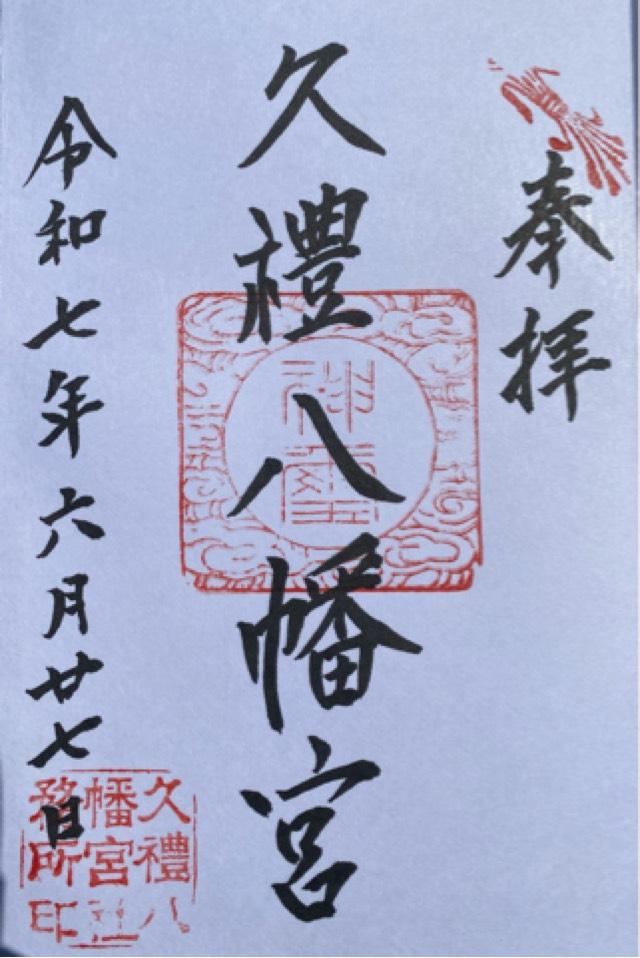 奉拝
久禮八幡宮
令和七年六月廿七日
久禮八
幡宮社
務所印